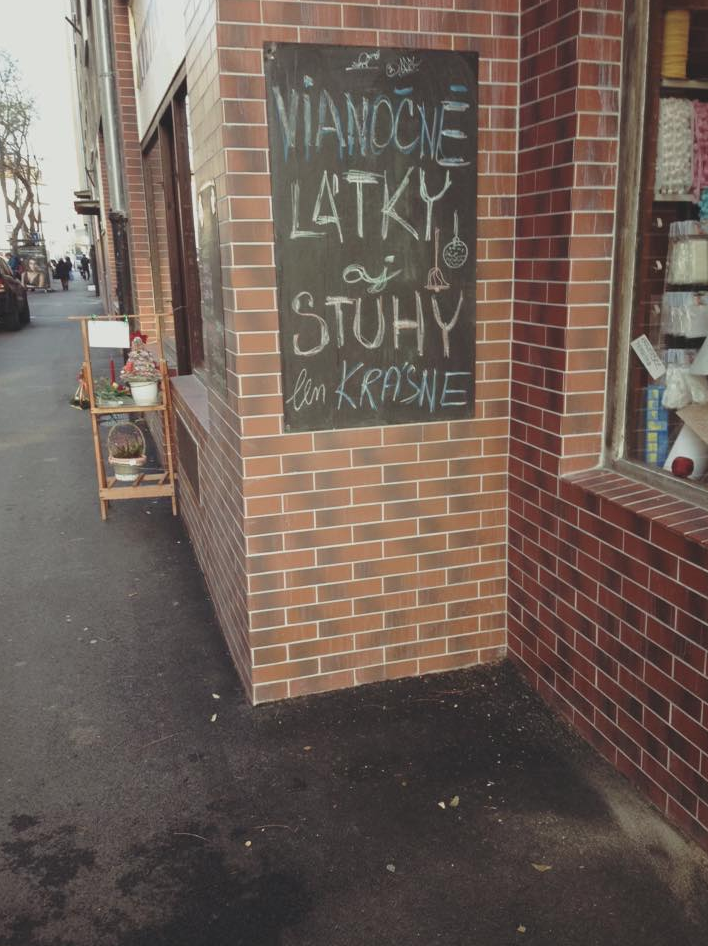 VIANOČNÉ
LÁTKY
aj
STUHY
len KRÁSNE